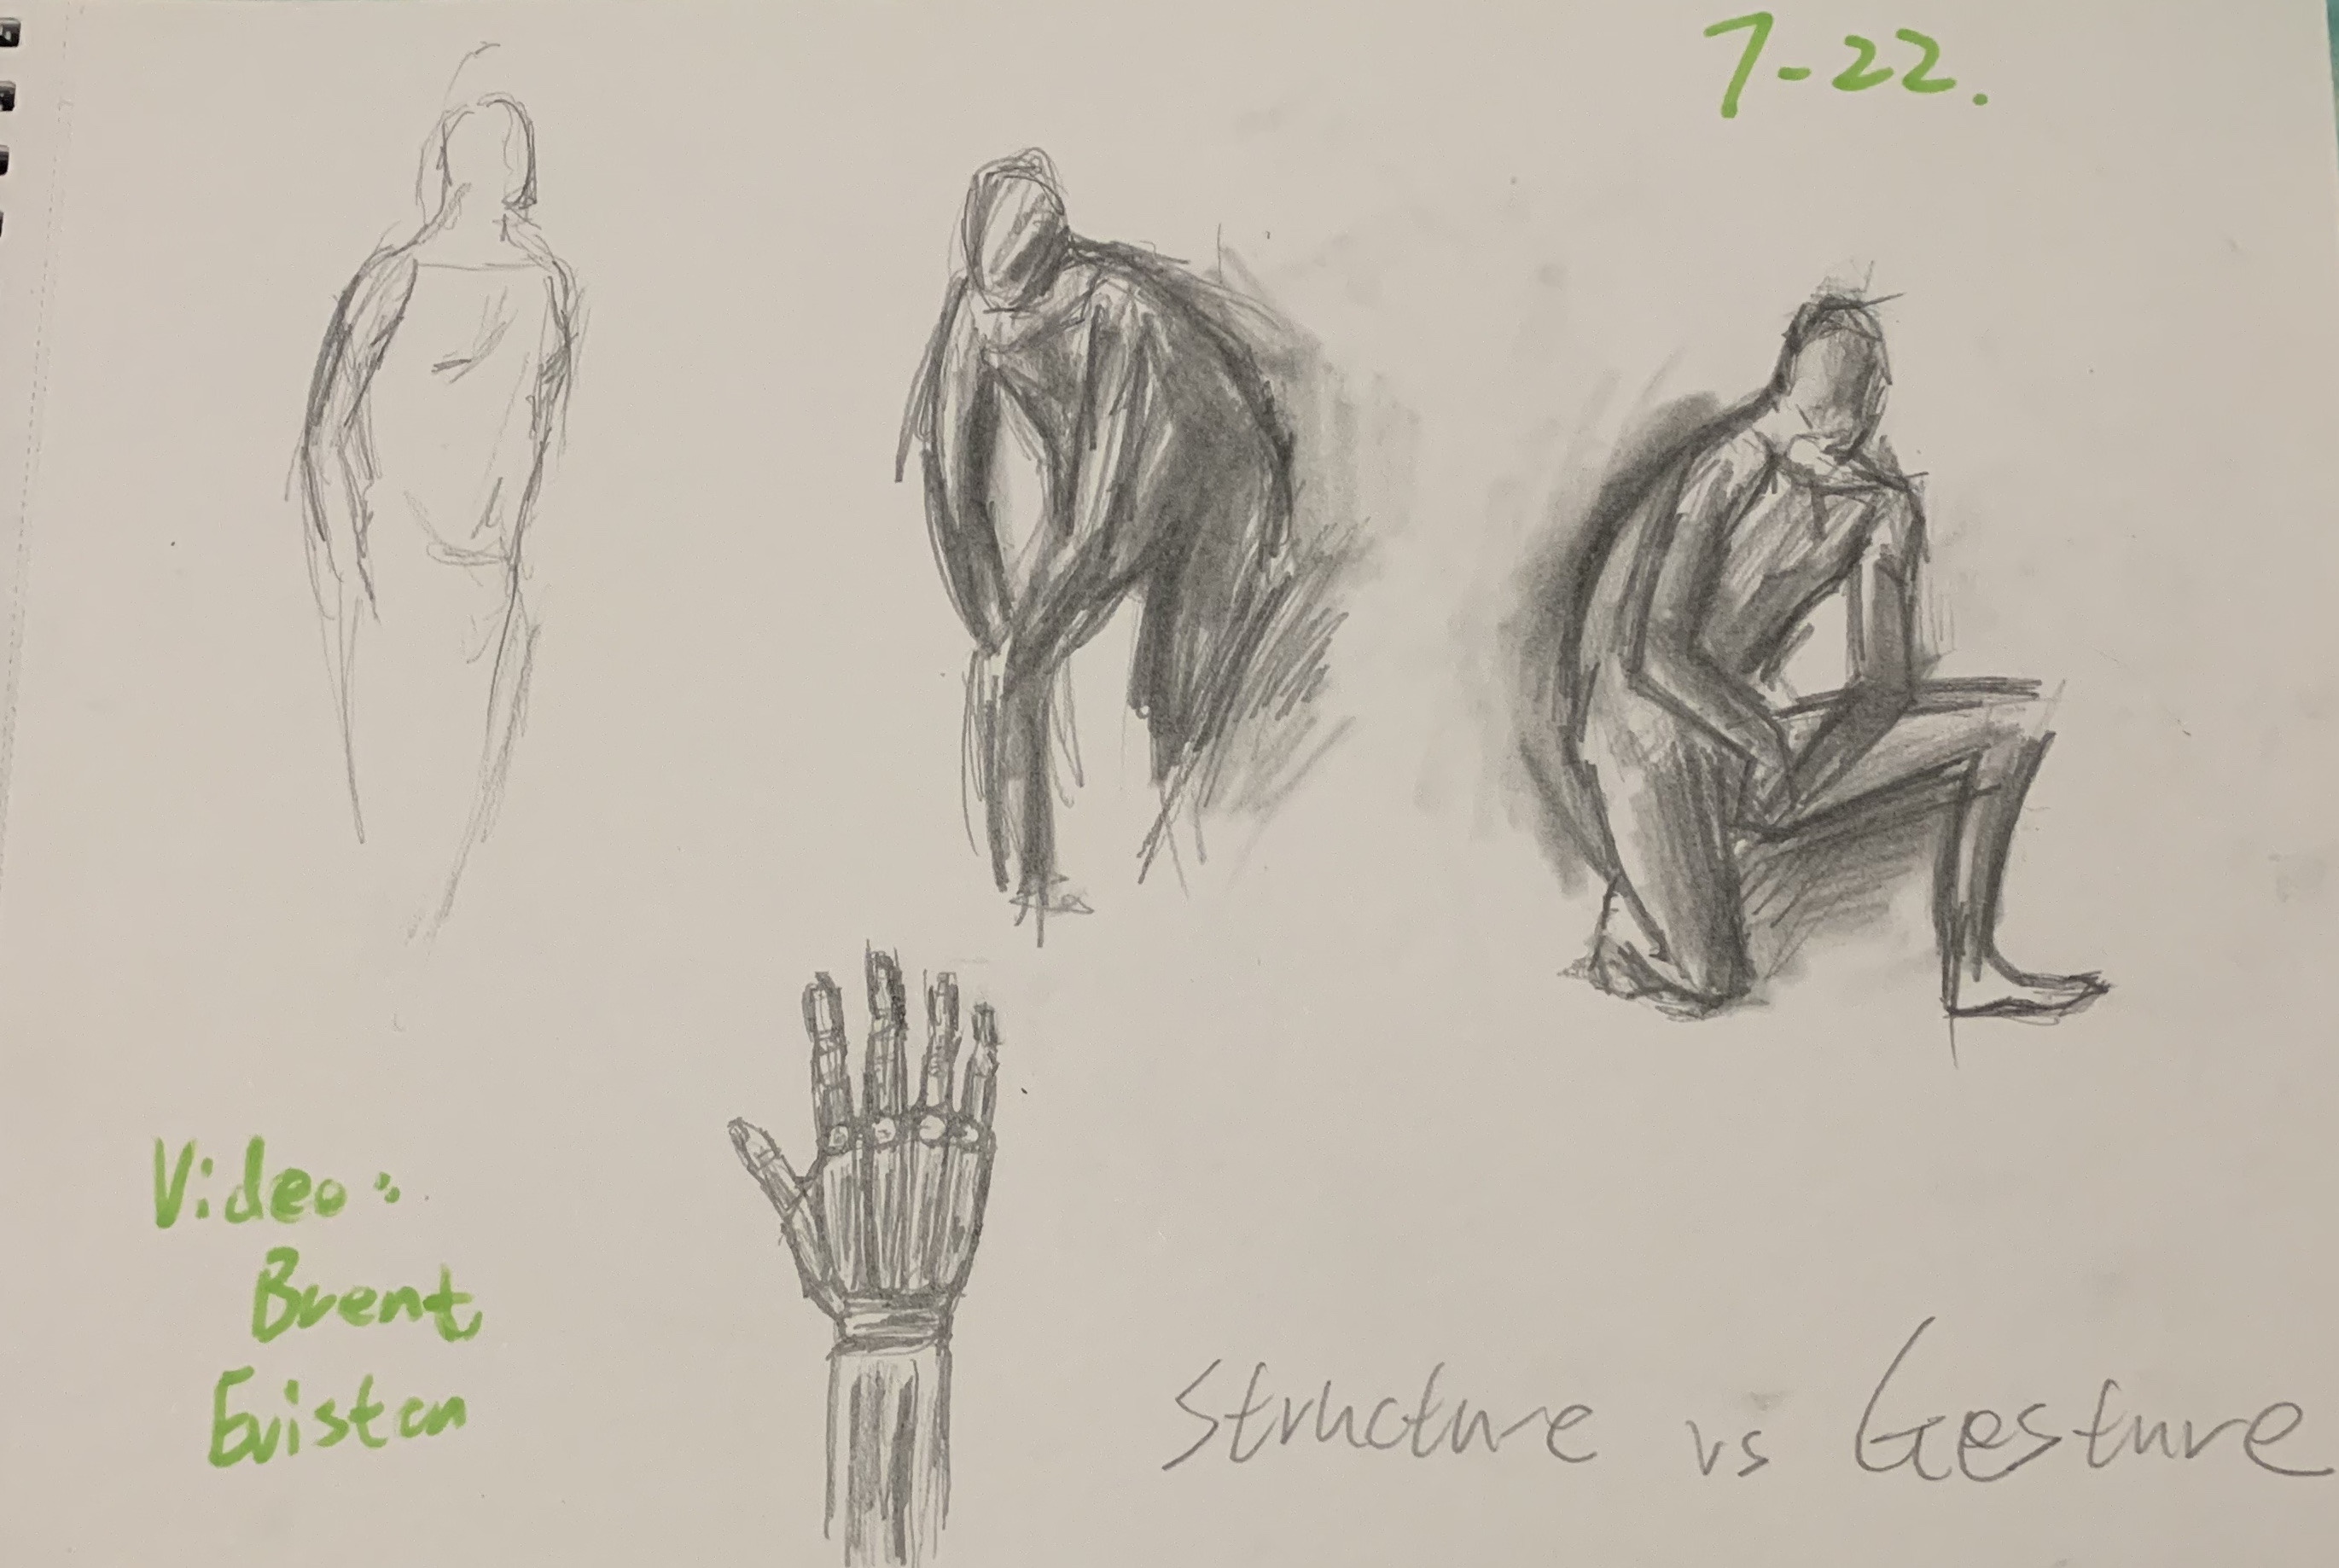 7-22.
Video:
Brent
Eviston
Structure vs Gesture